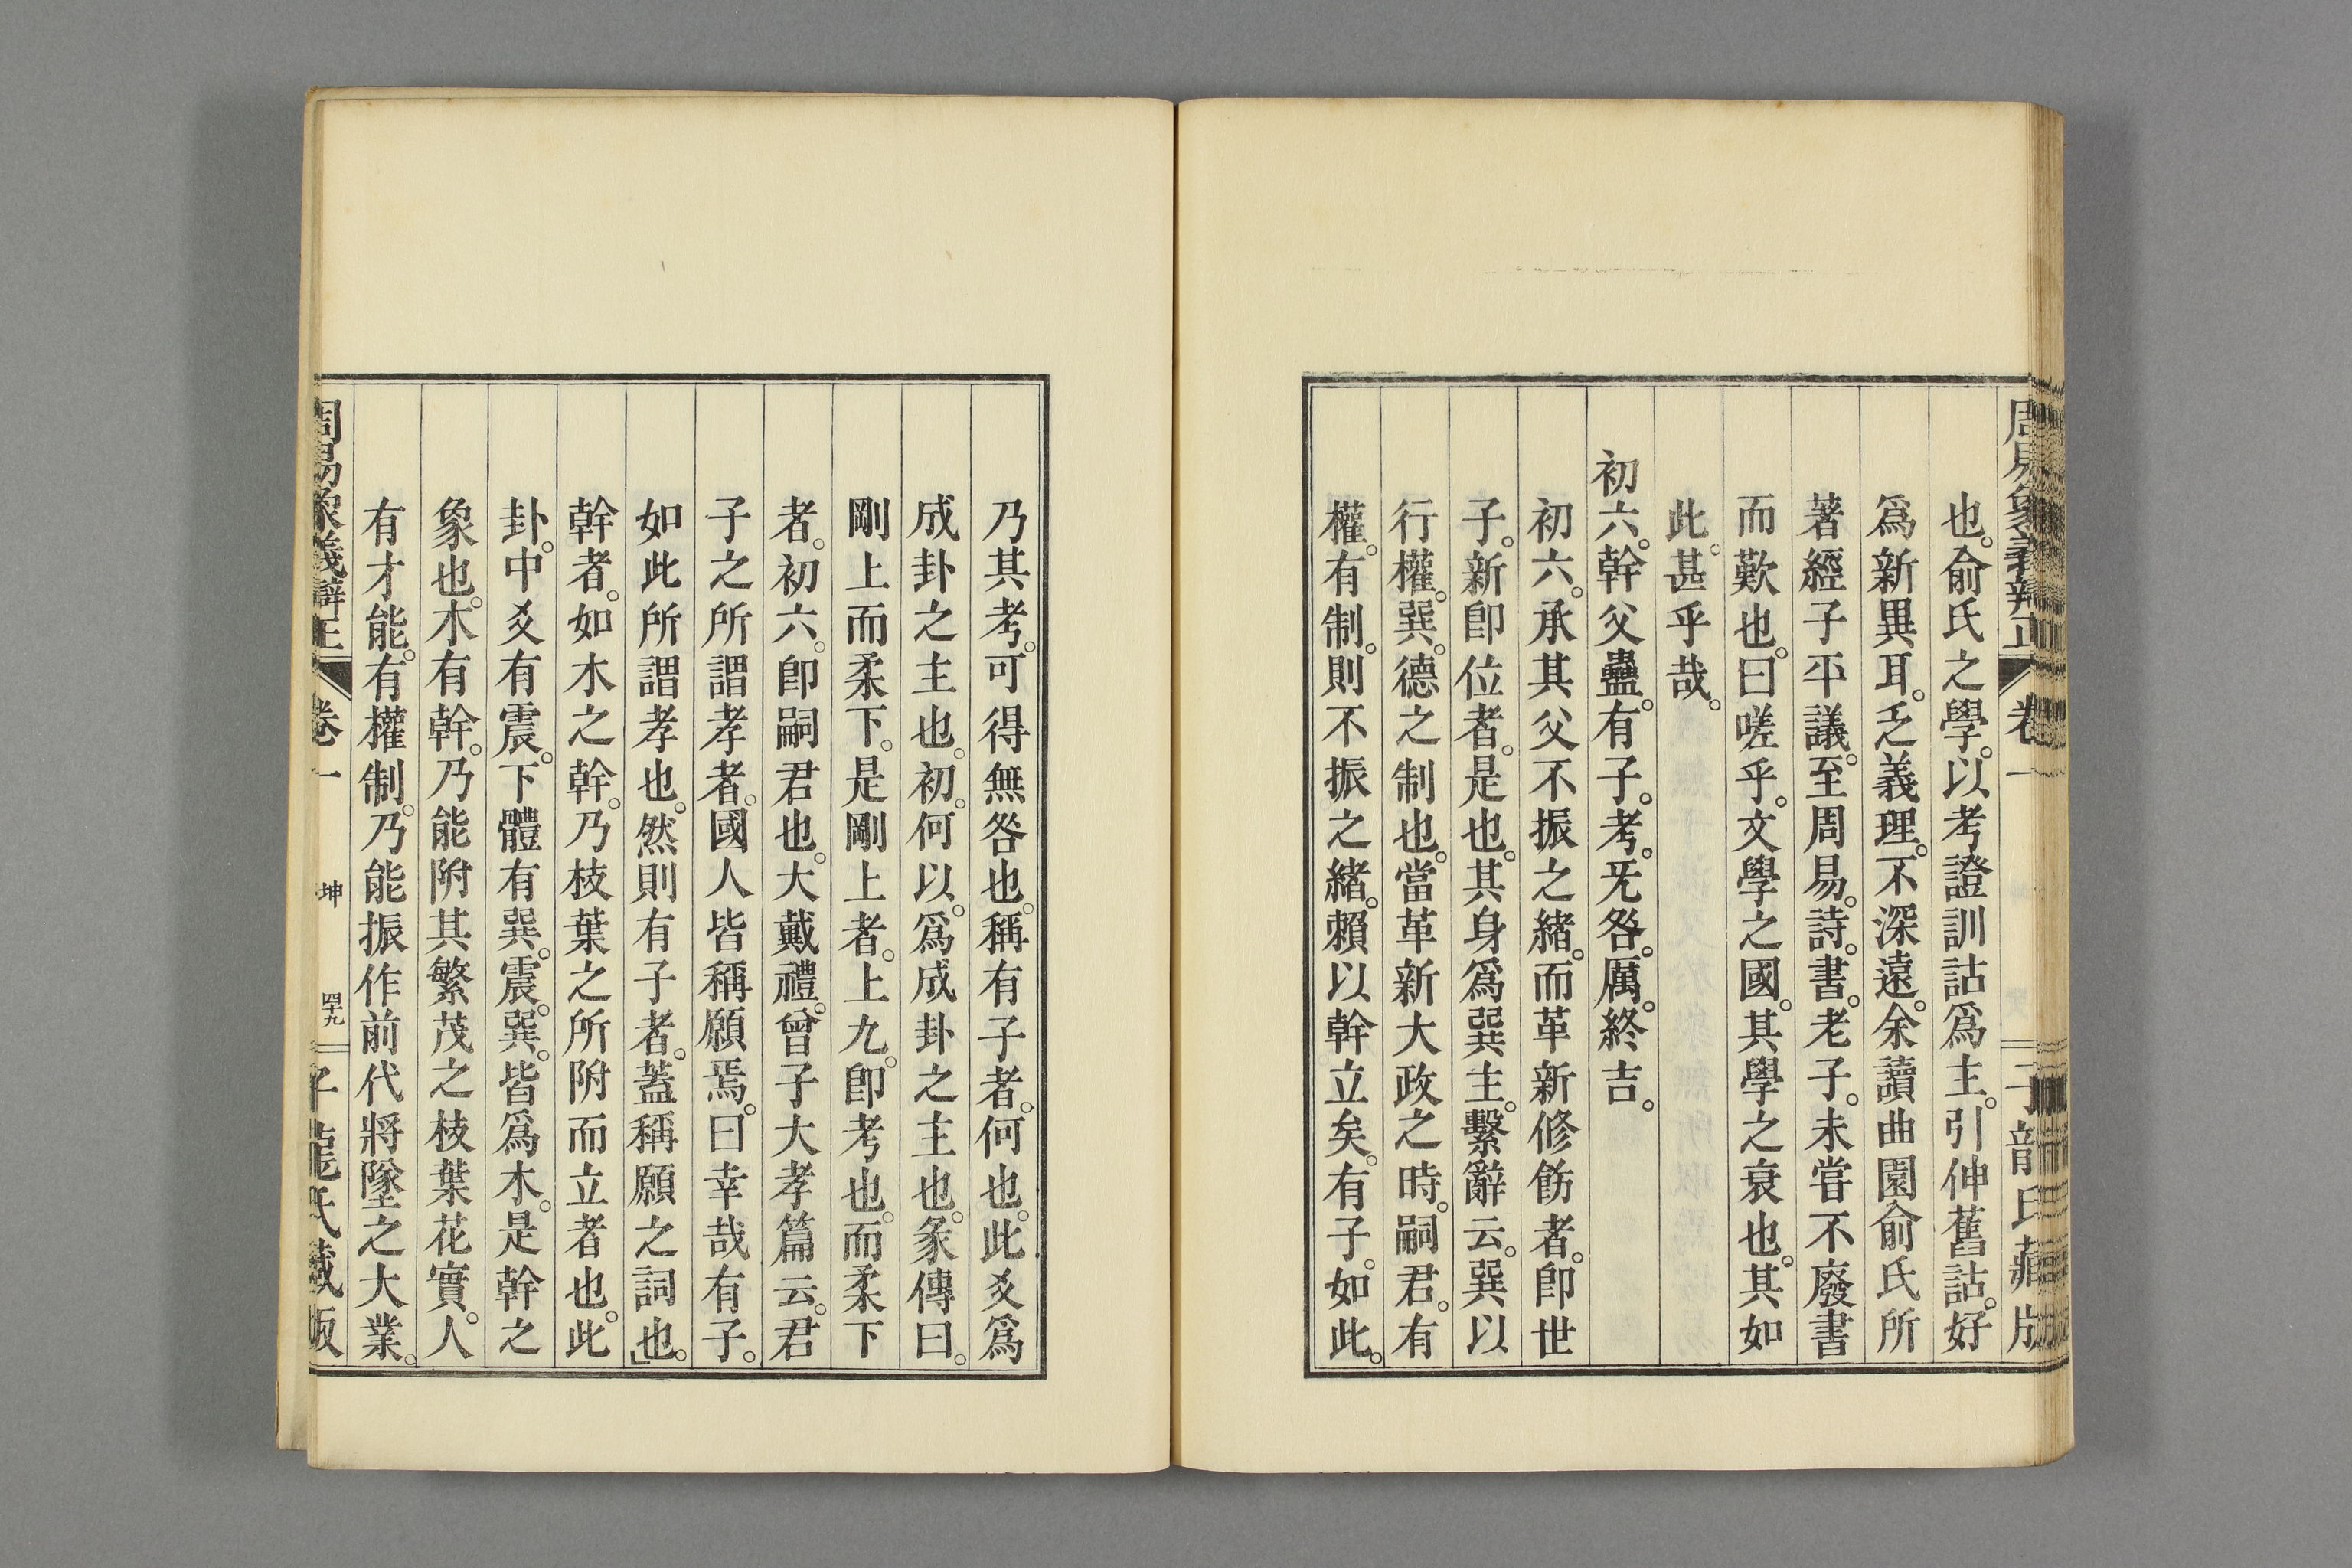 周易象義辯正 卷一 子龍氏藏版
也。俞氏之學。以考證訓詁爲主。引伸舊詁。好
爲新異耳。乏義理。不深遠。余讀曲園俞氏所
著經子平議。至周易。詩。書。老子。未嘗不廢書
而歎也。曰嗟乎。文學之國。其學之衰也。其如
此。甚乎哉。
初六。幹父蠱。有子。考。旡咎。厲。終吉。
初六。承其父不振之緒。而革新修飭者。卽世
子。新卽位者。是也。其身爲巽主。繫辭云。巽以
行權。巽。德之制也。當革新大政之時。嗣君。有
權。有制。則不振之緒。賴以幹立矣。有子。如此。
乃其考。可得無咎也。稱有子者。何也。此爻爲
成卦之主也。初。何以。爲成卦之主也。彖傳曰。
剛上而柔下。是剛上者。上九。卽考也。而柔下
者。初六。卽嗣君也。大戴禮。曾子大孝篇云。君
子之所謂孝者。國人皆稱願焉。曰幸哉有子。
如此所謂孝也。然則有子者。蓋稱願之詞也。」
幹者。如木之幹。乃枝葉之所附而立者也。此
卦。中爻有震。下體有巽。震。巽。皆爲木。是幹之
象也。木有幹。乃能附其繁茂之枝葉花實。人
有才能。有權制。乃能振作前代將墜之大業。
周易象義辯正 卷一 坤 四十九 子龍氏藏版